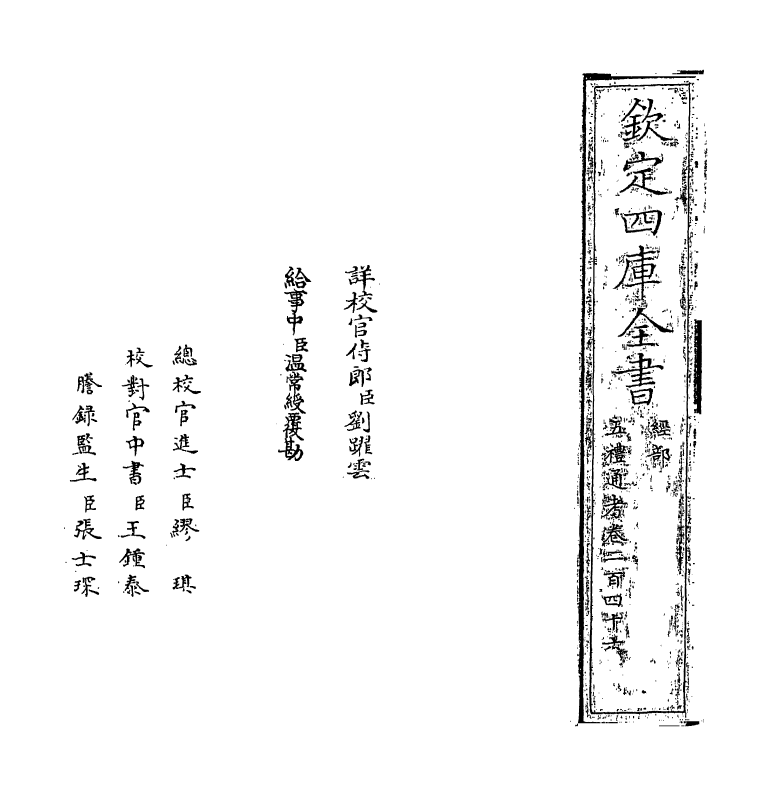 欽定四庫全書
經部
五禮通考卷二百四十六
詳校官侍郎臣劉躍雲
給事中臣溫常綬覆勘
總校官進士臣繆琪
校對官中書臣王鍾泰
謄錄監生臣張士琛